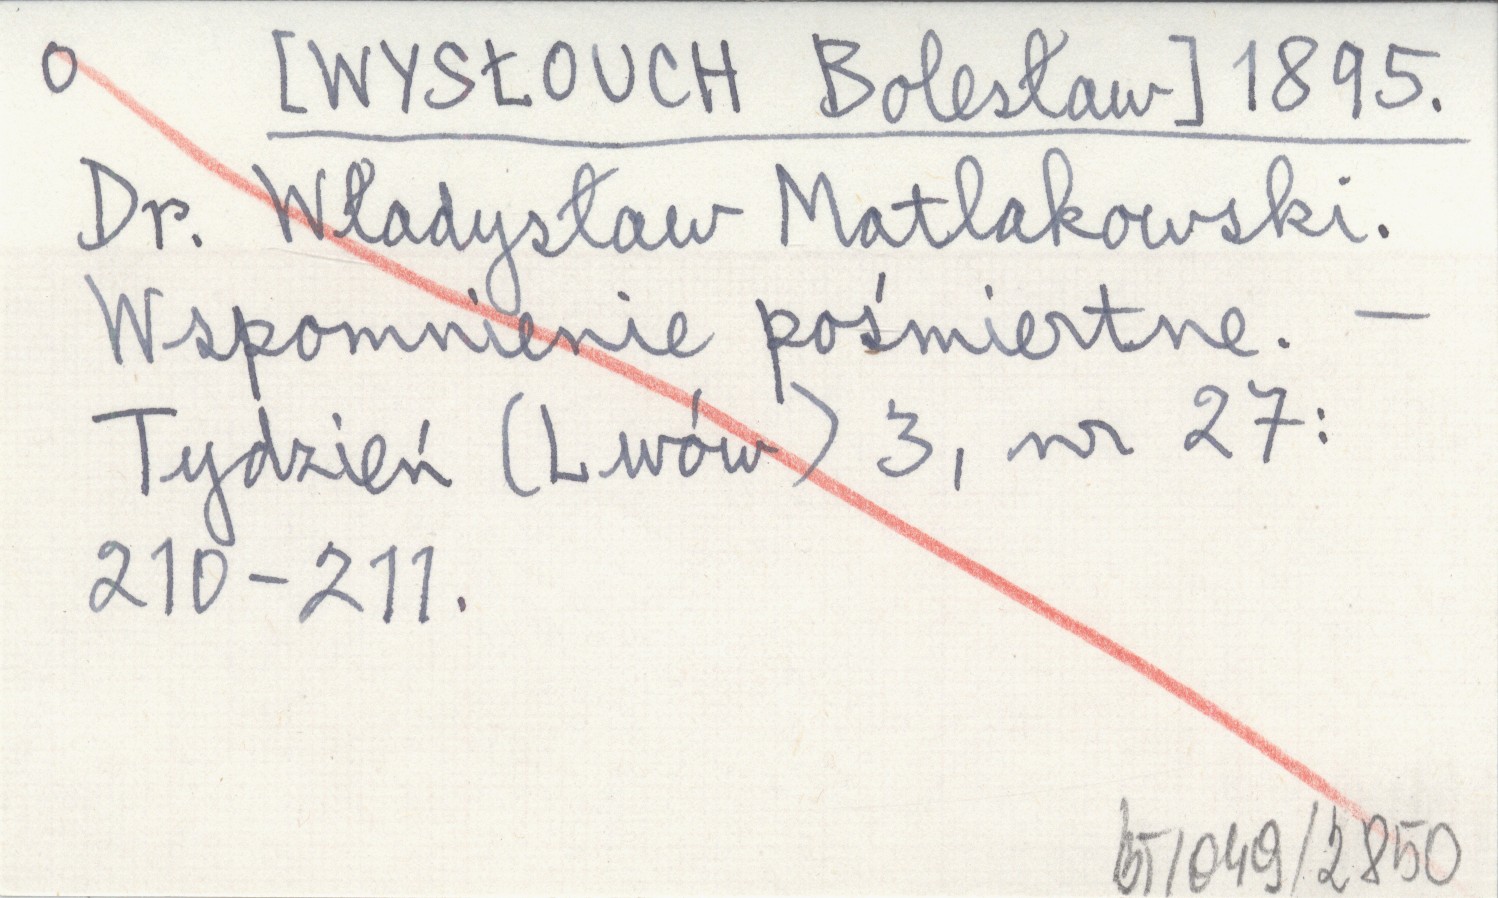 o [WYSŁOUCH Bolesław] 1895.
Dr. Władysław Matlakowski.
Wspomnienie pośmiertne. —
Tydzień (Lwów) 3, nr 27:
210-211.
/049/2850